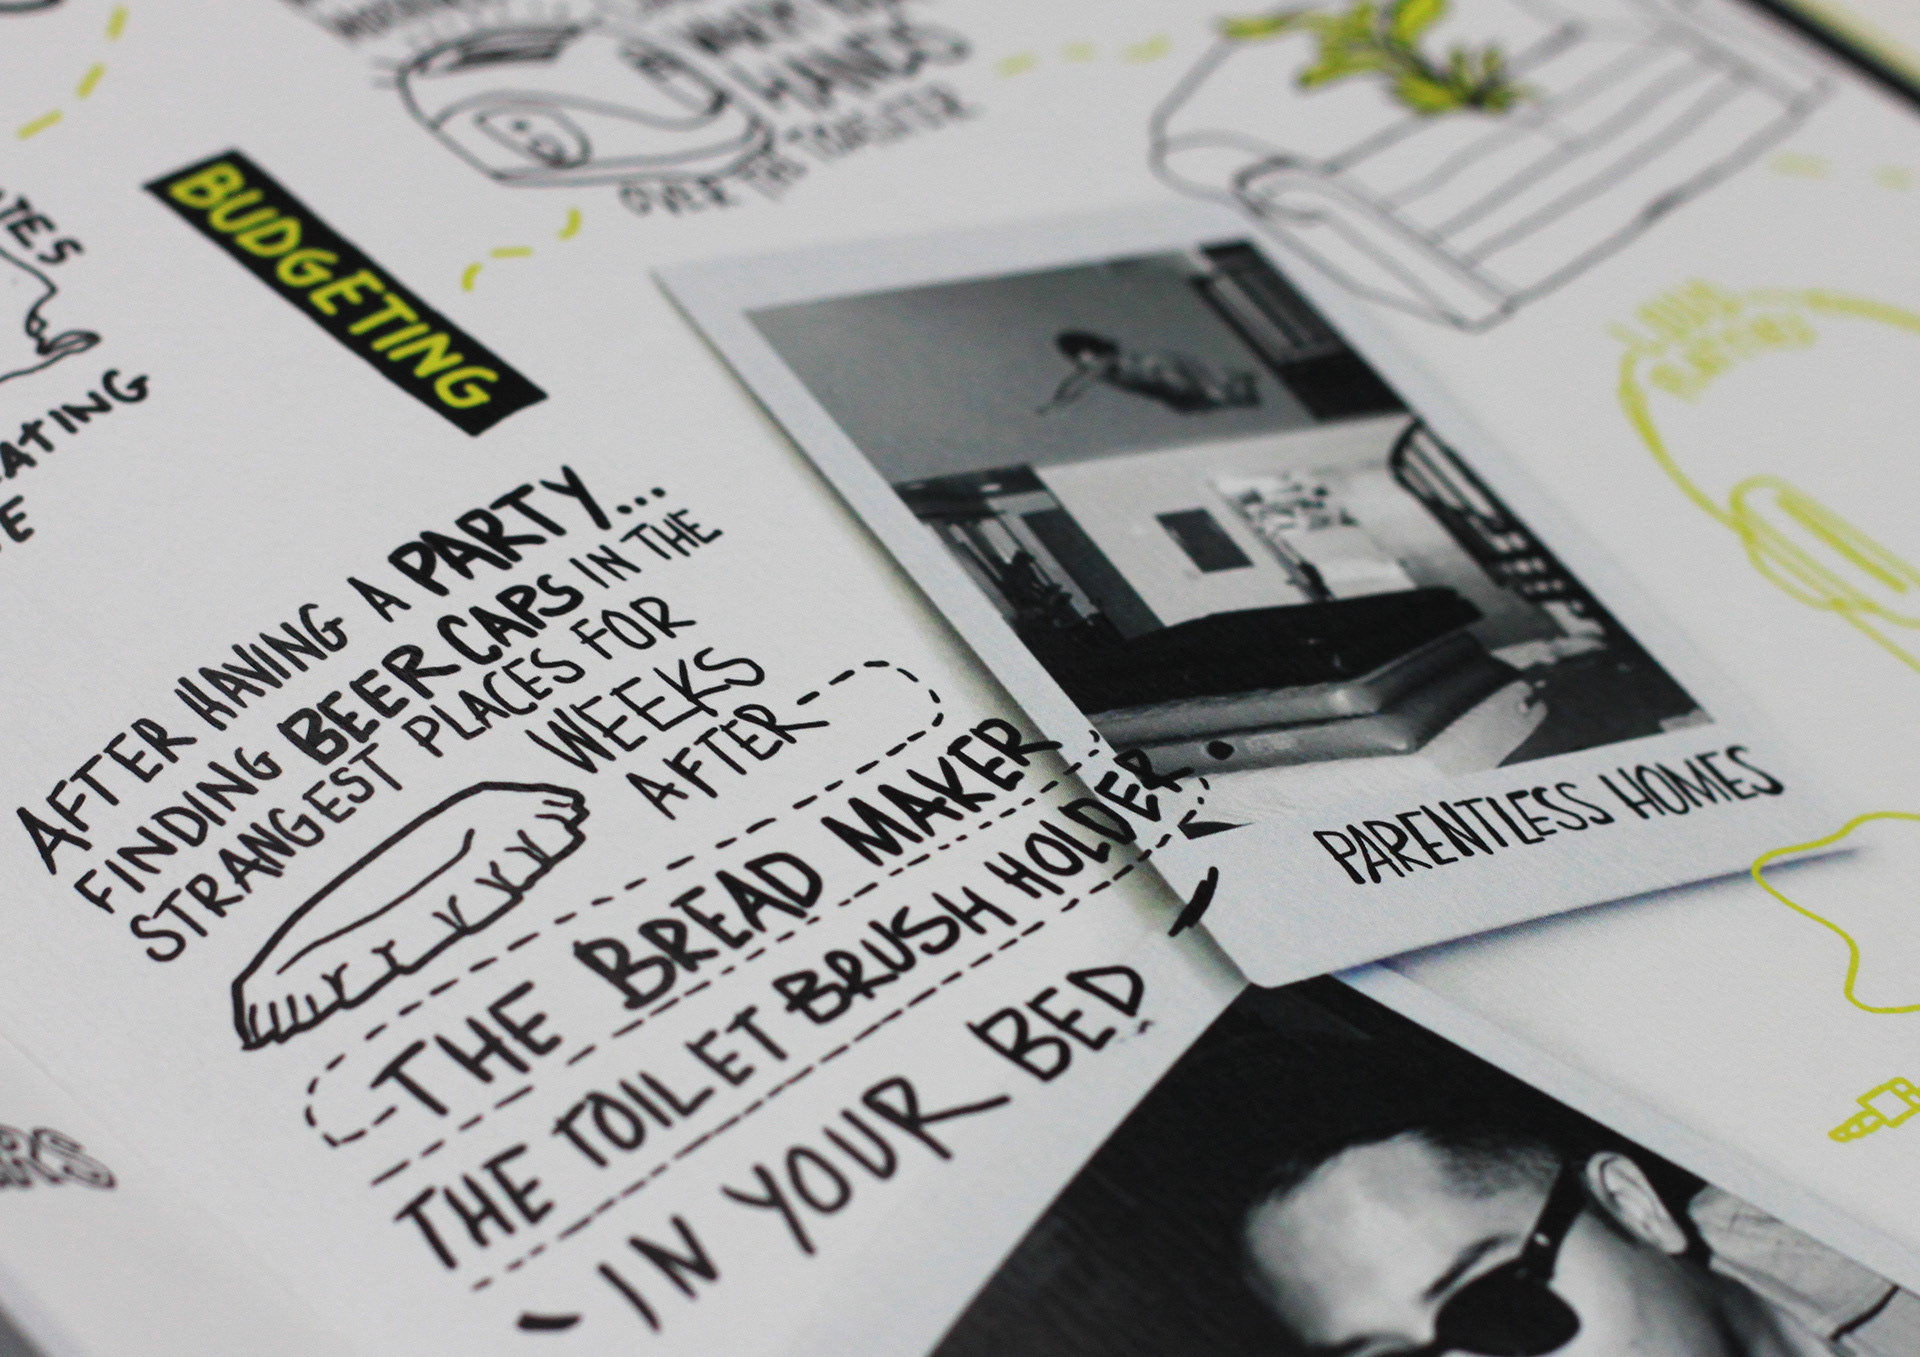 HANDS
OVER THE TOASTER
BUDGETING
LOUD
EATING
AFTER HAVING A PARTY...
FINDING BEER CAPS IN THE
STRANGEST PLACES FOR
WEEKS
AFTER
THE BREAD MAKER
THE TOILET BRUSH HOLDER
IN YOUR BED
PARENTLESS HOMES